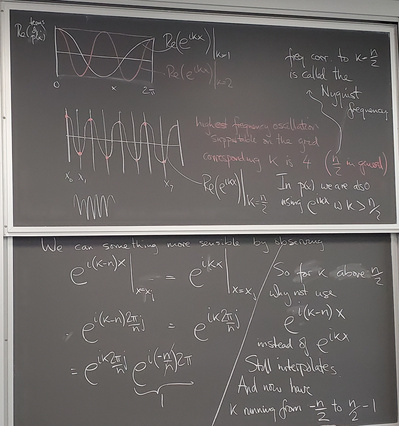 Re(terms of p(x))
Re(e^{ikx})|_{k=1}
Re(e^{ikx})|_{k=2}
0 x 2π
freq corr. to k=n/2
is called the
Nyquist
frequency
highest frequency oscillation
supportable on the grid
corresponding k is 4 (n/2 in general)
x_0 x_1 x_7
Re(e^{ikx})|_{k=n/2}
In p(x) we are also
using e^{ikx} w k > n/2
We can something more sensible by observing
e^{i(k-n)x}|_{x=x_j} = e^{ikx}|_{x=x_j}
e^{i(k-n)2π/n j} = e^{ik 2π/n j}
= e^{ik 2π/n j} e^{i(-n)j/n 2π}
1
So for k above n/2
why not use
e^{i(k-n)x}
instead of e^{ikx}
Still interpolates
And now have
k running from -n/2 to n/2 -1